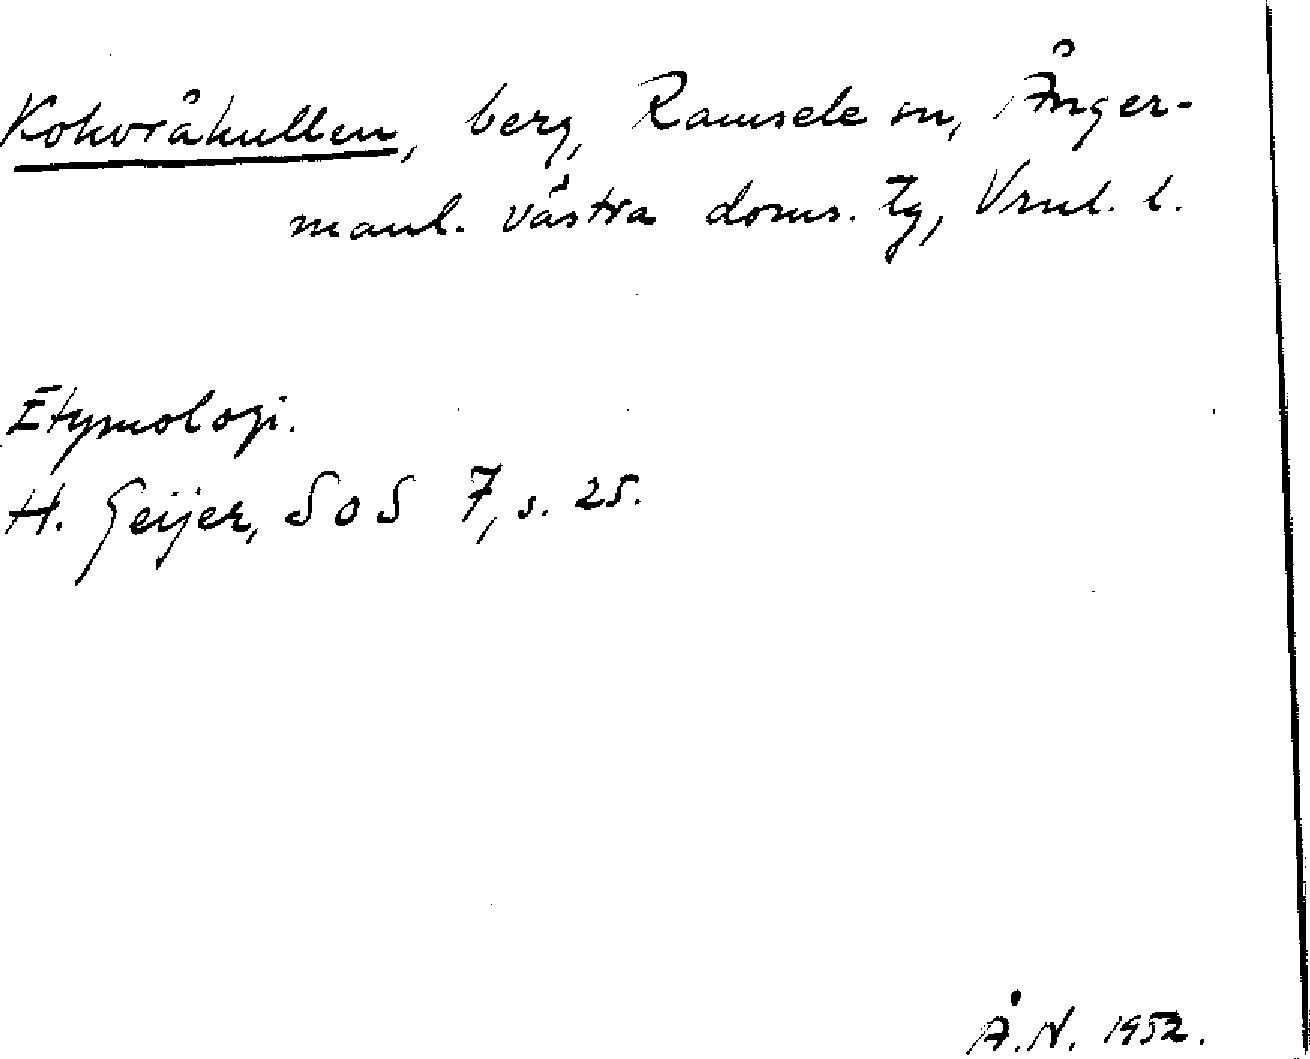 Kokvråkullen, berg, Ramsele sn, Ånger-
manl. västra doms. tg, Vrnl. l.
Etymologi.
H. Geijer, SOS 7, s. 25.
Å.N. 1952.